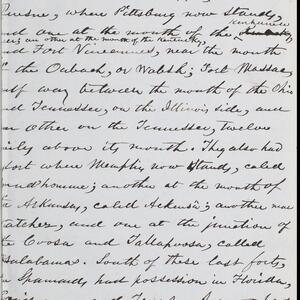 quesne, where Pittsburg now stands,
and one at the mouth of the Kentucky
ing an other at the mouth of the Kentucky,
and Fort Vincennes, near the mouth
f the Oubach, or Wabsh; Fort Massac
alf way between the mouth of the Ohio
and Tennessee, on the Illinois side, and
an Other on the Tennessee, twelve
iles above its mouth. They also had
fort where Memphis now stands, caled
rudhomme; another at the mouth of
the Arkansas, caled Ackensa; another near
atchez, and one at the junction of
the Coosa and Tallapoosa, called
oulabama. South of these last forts,
the Spaniards had possession in Florida,